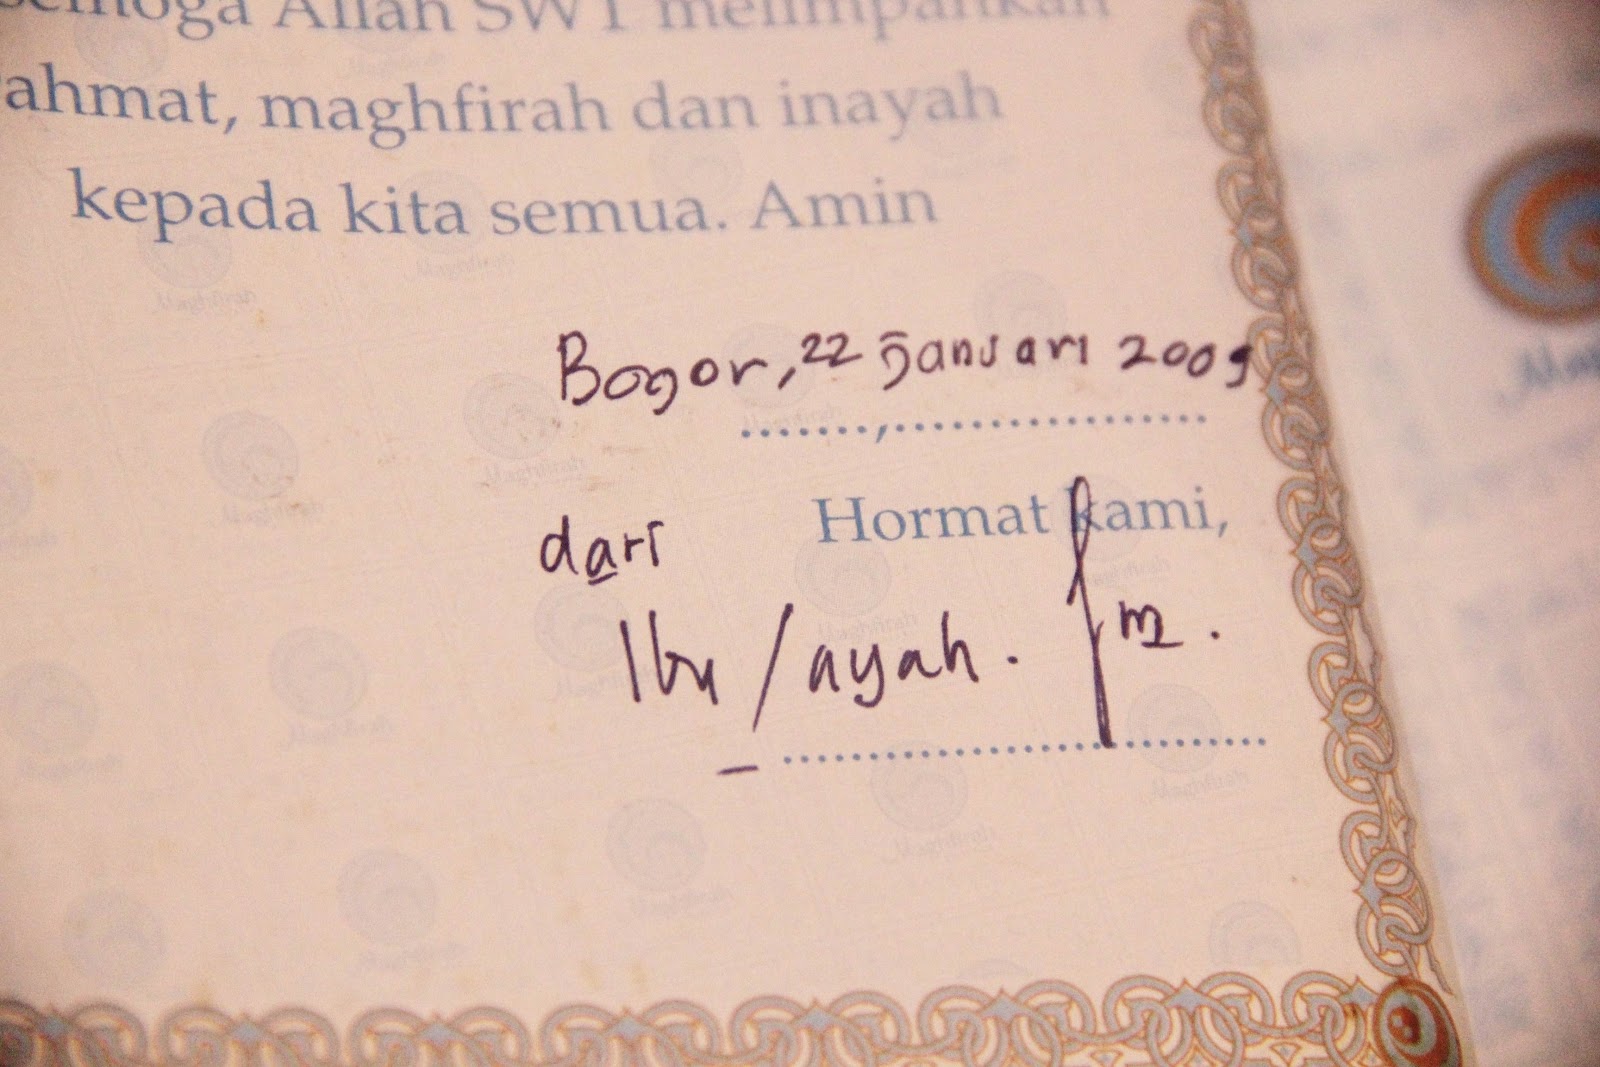 semoga Allah SWT melimpahkan
rahmat, maghfirah dan inayah
kepada kita semua. Amin
Bogor, 22 Januari 2009
.......,..................
dari Hormat kami,
Ibu / ayah.
Maghfirah